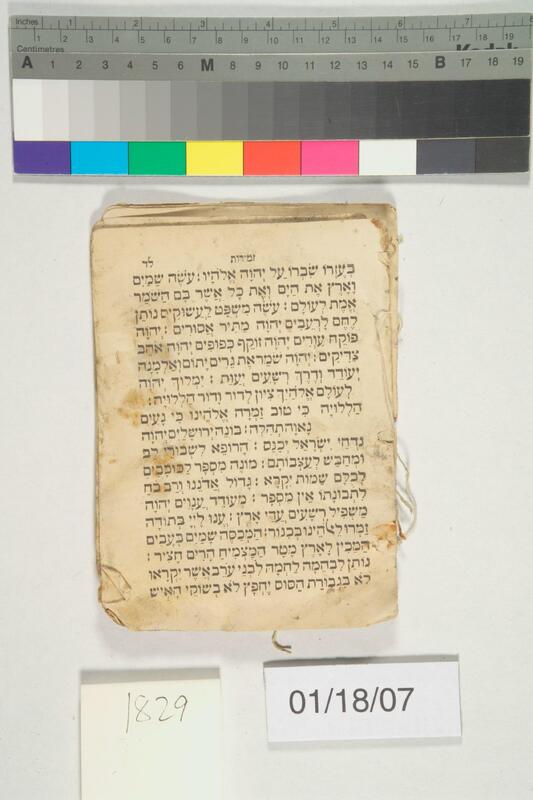 Inches 1 2 3 4 5 6 7 8
Centimetres 1 2 3 4 5 6 7 8 9 10 11 12 13 14 15 16 17 18 19
Kodak
A 1 2 3 4 5 6 M 8 9 10 11 12 13 14 15 B 17 18 19
זמירות לד
בְּעֶזְרוֹ שִׂבְרוֹ עַל יְהוָה אֱלֹהָיו: עֹשֶׂה שָׁמַיִם
וָאָרֶץ אֶת הַיָּם וְאֶת כָּל אֲשֶׁר בָּם הַשֹּׁמֵר
אֱמֶת לְעוֹלָם: עֹשֶׂה מִשְׁפָּט לָעֲשׁוּקִים נוֹתֵן
לֶחֶם לָרְעֵבִים יְהוָה מַתִּיר אֲסוּרִים: יְהוָה
פּוֹקֵחַ עִוְרִים יְהוָה זוֹקֵף כְּפוּפִים יְהוָה אֹהֵב
צַדִּיקִים: יְהוָה שֹׁמֵר אֶת גֵּרִים יָתוֹם וְאַלְמָנָה
יְעוֹדֵד וְדֶרֶךְ רְשָׁעִים יְעַוֵּת: יִמְלוֹךְ יְהוָה
לְעוֹלָם אֱלֹהַיִךְ צִיּוֹן לְדוֹר וָדוֹר הַלְלוּיָהּ:
הַלְלוּיָהּ כִּי טוֹב זַמְּרָה אֱלֹהֵינוּ כִּי נָעִים
נָאוָה תְהִלָּה: בּוֹנֵה יְרוּשָׁלַיִם יְהוָה
נִדְחֵי יִשְׂרָאֵל יְכַנֵּס: הָרוֹפֵא לִשְׁבוּרֵי לֵב
וּמְחַבֵּשׁ לְעַצְּבוֹתָם: מוֹנֶה מִסְפָּר לַכּוֹכָבִים
לְכֻלָּם שֵׁמוֹת יִקְרָא: גָּדוֹל אֲדֹנֵנוּ וְרַב כֹּחַ
לִתְבוּנָתוֹ אֵין מִסְפָּר: מְעוֹדֵד עֲנָוִים יְהוָה
מַשְׁפִּיל רְשָׁעִים עֲדֵי אָרֶץ: עֱנוּ לַיְיָ בְּתוֹדָה
זַמְּרוּ לֵאלֹהֵינוּ בְכִנּוֹר: הַמְכַסֶּה שָׁמַיִם בְּעָבִים
הַמֵּכִין לָאָרֶץ מָטָר הַמַּצְמִיחַ הָרִים חָצִיר:
נוֹתֵן לִבְהֵמָה לַחְמָהּ לִבְנֵי עֹרֵב אֲשֶׁר יִקְרָאוּ
לֹא בִגְבוּרַת הַסּוּס יֶחְפָּץ לֹא בְשׁוֹקֵי הָאִישׁ
1829
01/18/07